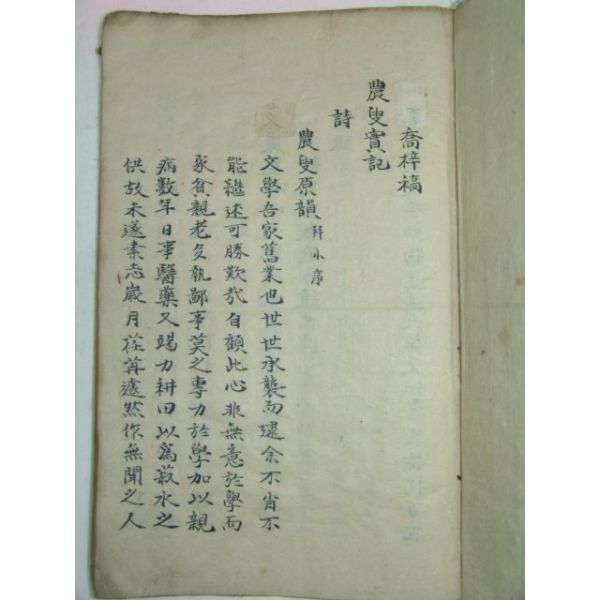 喬梓稿
農叟實記
詩
農叟原韻 幷小序
文學吾家舊業也世世承襲而逮余不肖不
能繼述可勝歎㦲自顧此心非無意於學而
家貧親老多執鄙事莫之專力於學加以親
病数年日事醫藥又竭力耕田以爲菽水之
供故未遂素志歲月荏苒遽然作無聞之人